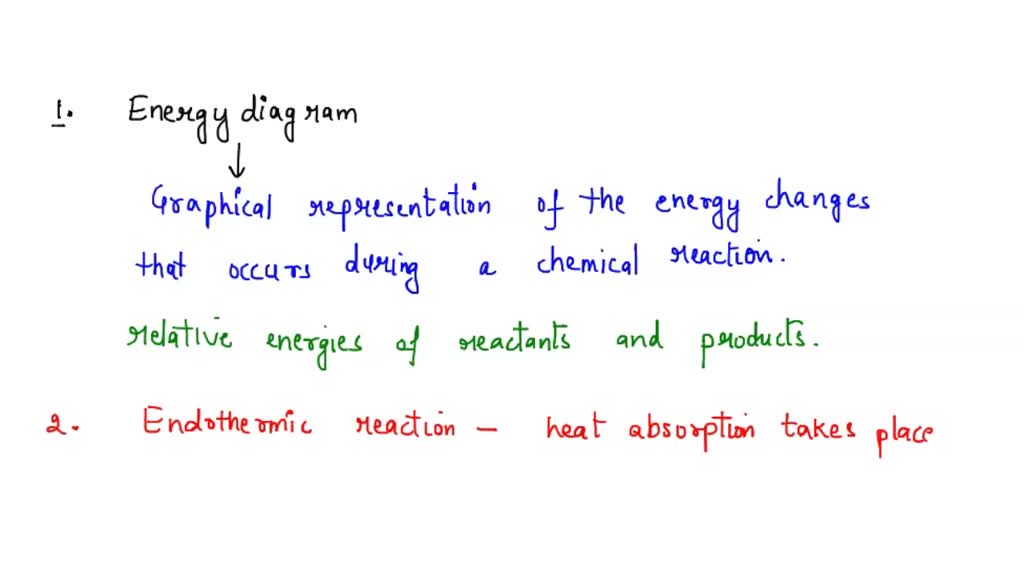 1. Energy diagram
Graphical representation of the energy changes
that occurs during a chemical reaction.
relative energies of reactants and products.
2. Endothermic reaction – heat absorption takes place